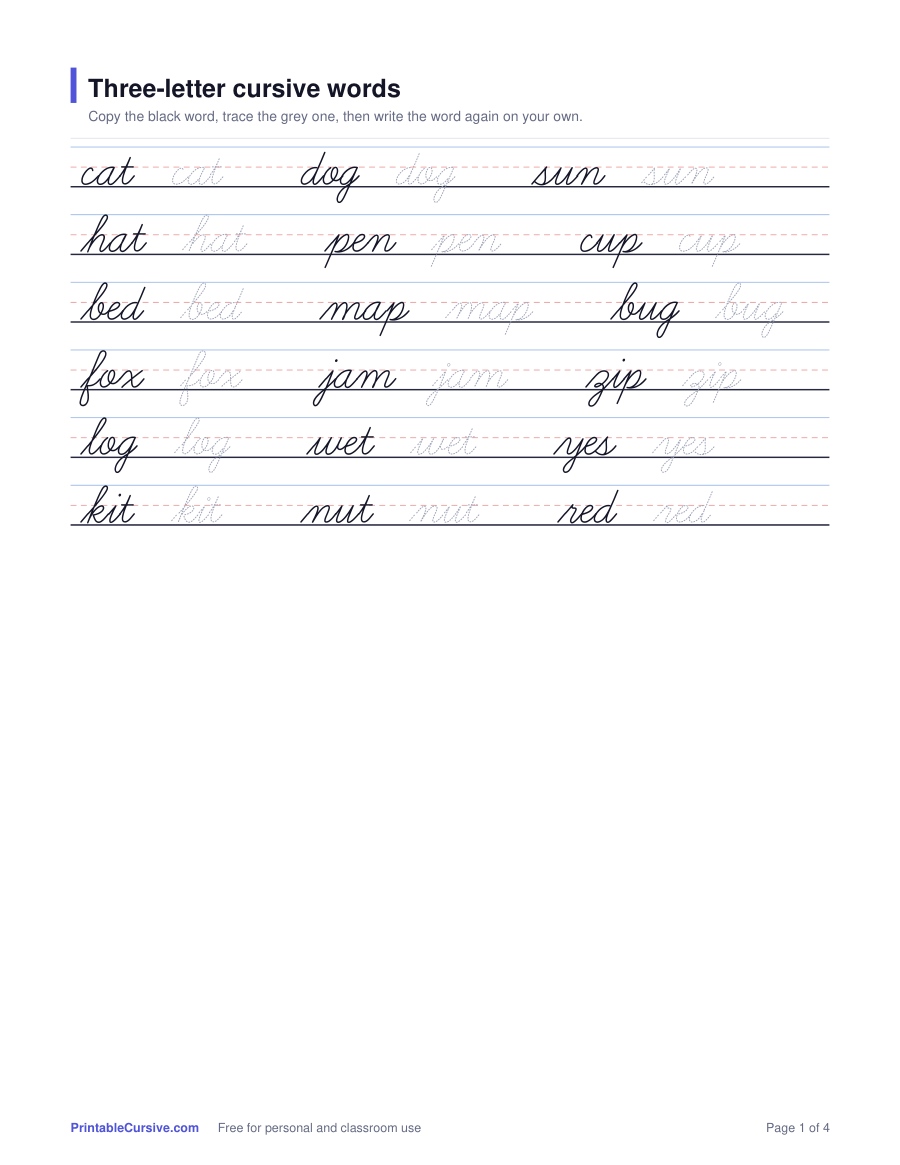 Three-letter cursive words
Copy the black word, trace the grey one, then write the word again on your own.
cat cat dog dog sun sun
hat hat pen pen cup cup
bed bed map map bug bug
fox fox jam jam zip zip
log log wet wet yes yes
kit kit nut nut red red
PrintableCursive.com Free for personal and classroom use Page 1 of 4